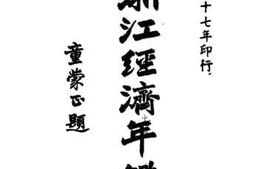 十七年印行
浙江經濟年鑑
童蒙正題